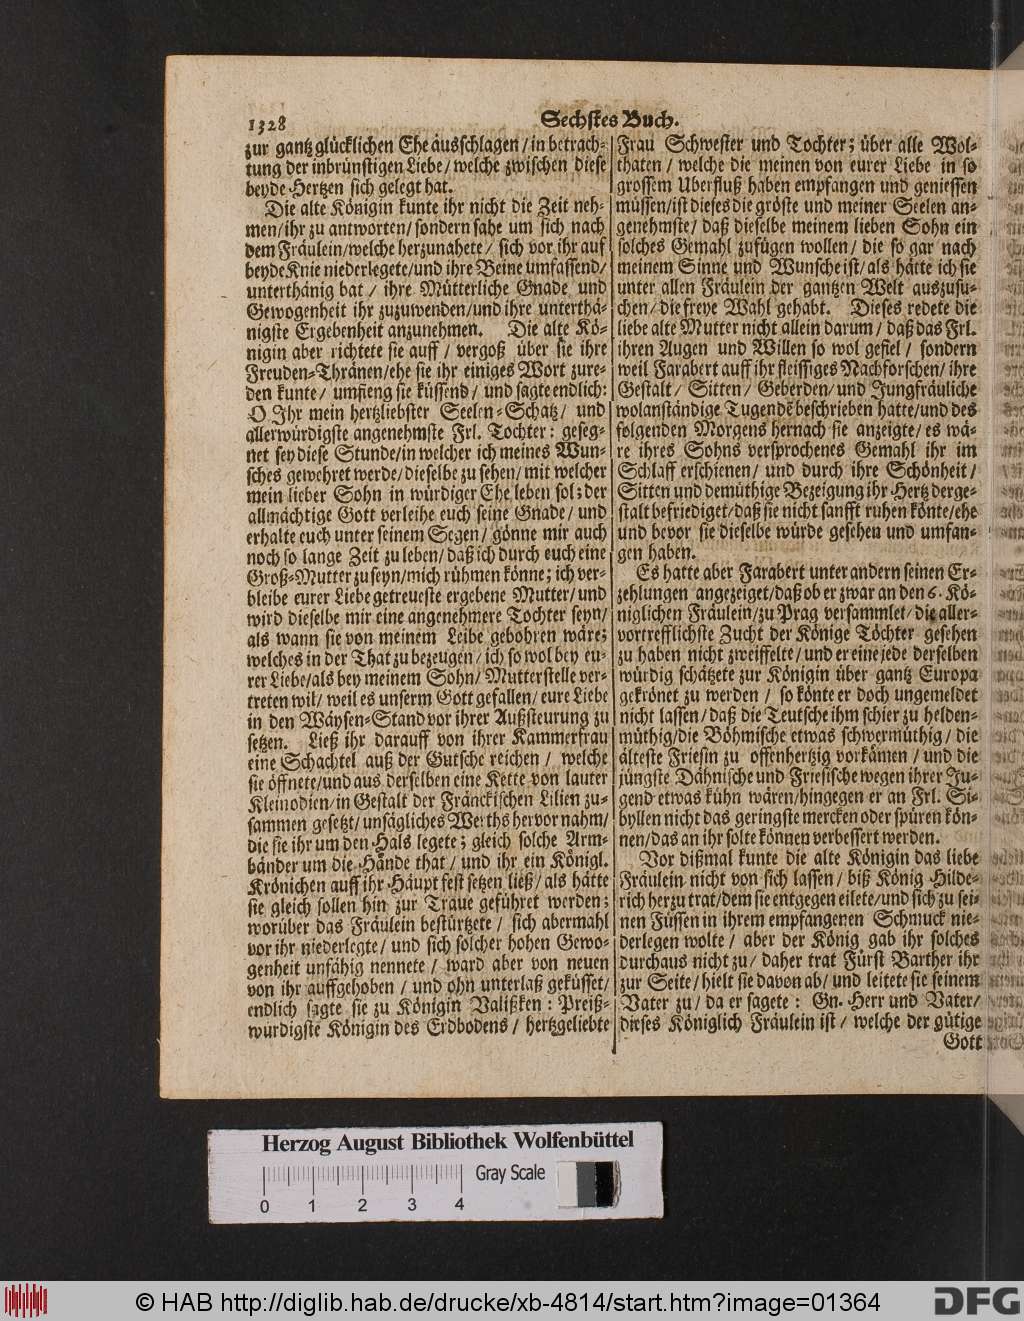 1328
Sechstes Buch.
zur gantz glücklichen Ehe ausschlagen / in betrach-
tung der inbrünstigen Liebe / welche zwischen diese
beyde Hertzen sich gelegt hat.
Die alte Königin kunte ihr nicht die Zeit neh-
men / ihr zu antworten / sondern sahe um sich nach
dem Fräulein / welche herzu nahete / sich vor ihr auf
beyde Knie niederlegete / und ihre Beine umfassend /
unterthänig bat / ihre Mütterliche Gnade und
Gewogenheit ihr zuzuwenden / und ihre unterthä-
nigste Ergebenheit anzunehmen. Die alte Kö-
nigin aber richtete sie auff / vergoß über sie ihre
Freuden-Thränen / ehe sie ihr einiges Wort zure-
den kunte / umfieng sie küssend / und sagte endlich:
O Ihr mein hertzliebster Seelen-Schatz / und
allerwürdigste angenehmste Frl. Tochter: geseg-
net sey diese Stunde / in welcher ich meines Wun-
sches gewehret werde / dieselbe zu sehen / mit welcher
mein lieber Sohn in würdiger Ehe leben sol; der
allmächtige Gott verleihe euch seine Gnade / und
erhalte euch unter seinem Segen / gönne mir auch
noch so lange Zeit zu leben / daß ich durch euch eine
Groß-Mutter zu seyn / mich rühmen könne; ich ver-
bleibe eurer Liebe getreueste ergebene Mutter / und
wird dieselbe mir eine angenehmere Tochter seyn /
als wann sie von meinem Leibe gebohren wäre;
welches in der That zu bezeugen / ich so wol bey eu-
rer Liebe / als bey meinem Sohn / Mutterstelle ver-
treten wil / weil es unserm Gott gefallen / eure Liebe
in den Wäysen-Stand vor ihrer Außsteurung zu
setzen. Ließ ihr darauff von ihrer Kammerfrau
eine Schachtel auß der Gutsche reichen / welche
sie öffnete / und aus derselben eine Kette von lauter
Kleinodien / in Gestalt der Fränckischen Lilien zu-
sammen gesetzt / unsägliches Werths hervor nahm /
die sie ihr um den Hals legete; gleich solche Arm-
bänder um die Hände that / und ihr ein Königl.
Krönichen auff ihr Häupt fest setzen ließ / als hätte
sie gleich sollen hin zur Traue geführet werden;
worüber das Fräulein bestürtzete / sich abermahl
vor ihr niederlegte / und sich solcher hohen Gewo-
genheit unfähig nennete / ward aber von neuen
von ihr auffgehoben / und ohn unterlaß geküsset /
endlich sagte sie zu Königin Valißken: Preiß-
würdigste Königin des Erdbodens / hertzgeliebte
Frau Schwester und Tochter; über alle Wol-
thaten / welche die meinen von eurer Liebe in so
grossem Uberfluß haben empfangen und geniessen
müssen / ist dieses die gröste und meiner Seelen an-
genehmste / daß dieselbe meinem lieben Sohn ein
solches Gemahl zufügen wollen / die so gar nach
meinem Sinne und Wunsche ist / als hätte ich sie
unter allen Fräulein der gantzen Welt auszusu-
chen / die freye Wahl gehabt. Dieses redete die
liebe alte Mutter nicht allein darum / daß das Frl.
ihren Augen und Willen so wol gefiel / sondern
weil Farabert auff ihr fleissiges Nachforschen / ihre
Gestalt / Sitten / Geberden / und Jungfräuliche
wolanständige Tugendẽ beschrieben hatte / und des
folgenden Morgens hernach sie anzeigte / es wä-
re ihres Sohns versprochenes Gemahl ihr im
Schlaff erschienen / und durch ihre Schönheit /
Sitten und demüthige Bezeigung ihr Hertz derge-
stalt befriediget / daß sie nicht sanfft ruhen könte / ehe
und bevor sie dieselbe würde gesehen und umfan-
gen haben.
Es hatte aber Farabert unter andern seinen Er-
zehlungen angezeiget / daß ob er zwar an den 6. Kö-
niglichen Fräulein / zu Prag versammlet / die aller-
vortrefflichste Zucht der Könige Töchter gesehen
zu haben nicht zweiffelte / und er eine jede derselben
würdig schätzete zur Königin über gantz Europa
gekrönet zu werden / so könte er doch ungemeldet
nicht lassen / daß die Teutsche ihm schier zu helden-
müthig / die Böhmische etwas schwermüthig / die
älteste Friesin zu offenhertzig vorkämen / und die
jüngste Dähnische und Friesische wegen ihrer Ju-
gend etwas kühn wären / hingegen er an Frl. Si-
byllen nicht das geringste mercken oder spüren kön-
nen / das an ihr solte können verbessert werden.
Vor dißmal kunte die alte Königin das liebe
Fräulein nicht von sich lassen / biß König Hilde-
rich herzu trat / dem sie entgegen eilete / und sich zu sei-
nen Füssen in ihrem empfangenen Schmuck nie-
derlegen wolte / aber der König gab ihr solches
durchaus nicht zu / daher trat Fürst Barther ihr
zur Seite / hielt sie davon ab / und leitete sie seinem
Vater zu / da er sagete: Gn. Herr und Vater /
dieses Königlich Fräulein ist / welche der gütige
Gott
Herzog August Bibliothek Wolfenbüttel
Gray Scale
0 1 2 3 4
© HAB http://diglib.hab.de/drucke/xb-4814/start.htm?image=01364
DFG